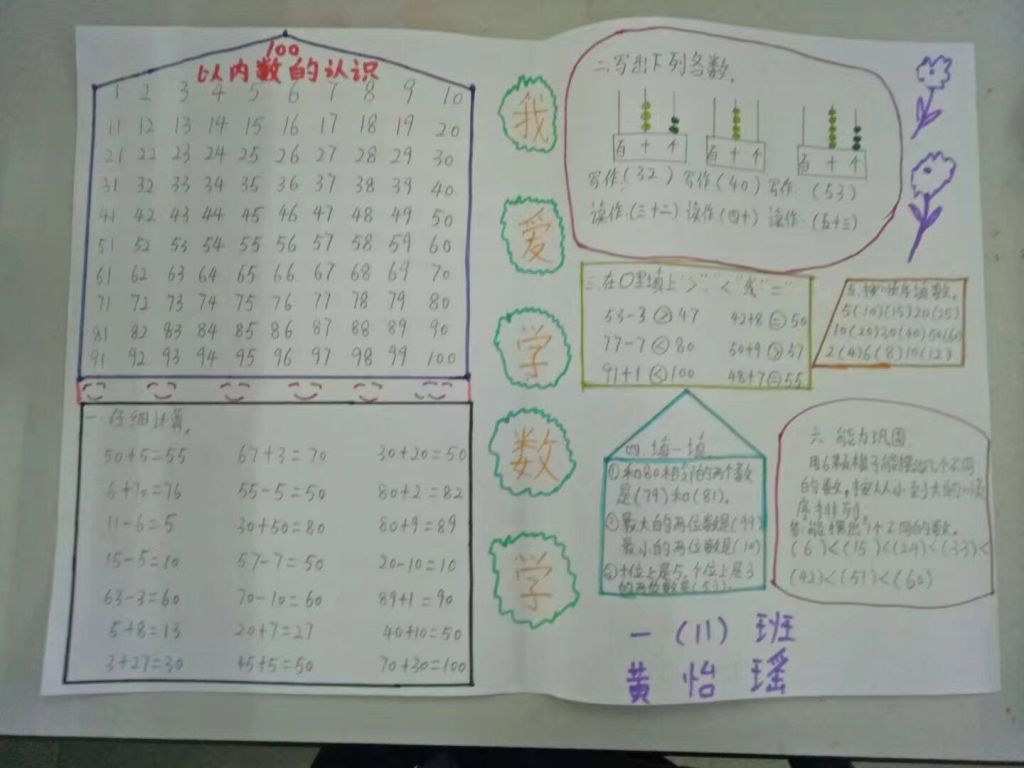 100
以内数的认识
1 2 3 4 5 6 7 8 9 10
11 12 13 14 15 16 17 18 19 20
21 22 23 24 25 26 27 28 29 30
31 32 33 34 35 36 37 38 39 40
41 42 43 44 45 46 47 48 49 50
51 52 53 54 55 56 57 58 59 60
61 62 63 64 65 66 67 68 69 70
71 72 73 74 75 76 77 78 79 80
81 82 83 84 85 86 87 88 89 90
91 92 93 94 95 96 97 98 99 100
一 仔细计算。
50+5=55 67+3=70 30+20=50
6+70=76 55-5=50 80+2=82
11-6=5 30+50=80 80+9=89
15-5=10 57-7=50 20-10=10
63-3=60 70-10=60 89+1=90
5+8=13 20+7=27 40+10=50
3+27=30 45+5=50 70+30=100
我
爱
学
数
学
二、写出下列各数。
百十个 百十个 百十个
写作:(32) 写作(40) 写作:(53)
读作:(三十二) 读作(四十) 读作:(五十三)
三.在〇里填上“>”“<”或“=”
53-3>47 42+8=50
77-7<80 50+9>57
91+1<100 48+7=55
5(10)(15)20(25)
10(20)30(40)50(60)
2(4)6(8)10(12)
四.填一填
①和80相邻的两个数
是(79)和(81)。
②最大的两位数是(99)
最小的两位数是(10)
③十位上是5,个位上是3
的两位数是(53)。
六、能力巩固
的数,按从小至大的顺
序排列。
答:能摆出7个不同的数。
(6)<(15)<(24)<(33)<
(42)<(51)<(60)
一(11)班
黄怡瑶